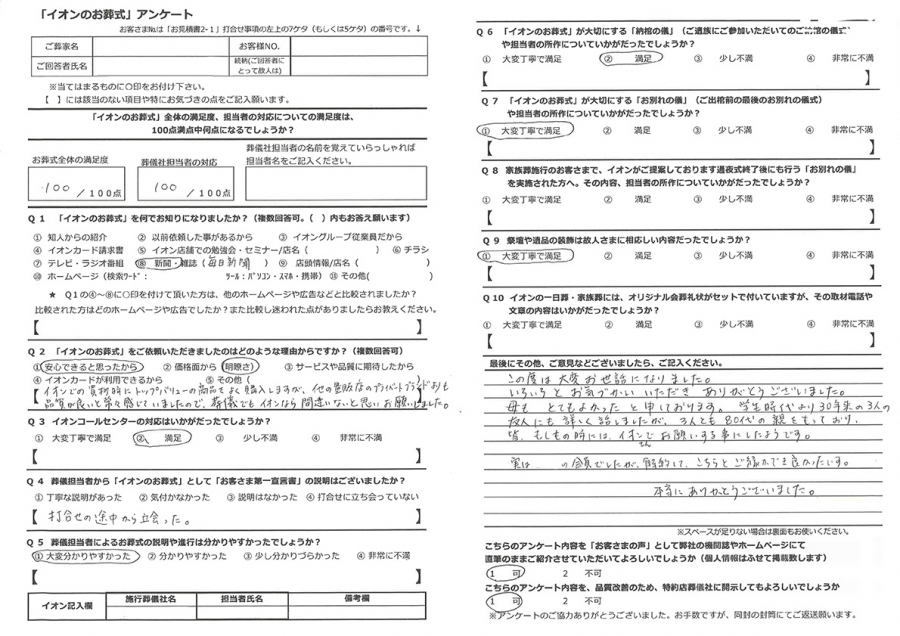 「イオンのお葬式」アンケート
お客さま№は「お見積書2-1」打合せ事項の左上の7ケタ(もしくは5ケタ)の番号です。↓
ご葬家名
お客様NO.
ご回答者氏名
続柄(ご回答者にとって故人は)
※当てはまるものに〇印をお付け下さい。
【 】には該当のない項目や特にお気づきの点をご記入願います。
「イオンのお葬式」全体の満足度、担当者の対応についての満足度は、
100点満点中何点になるでしょうか?
お葬式全体の満足度
葬儀社担当者の対応
葬儀社担当者の名前を覚えていらっしゃれば
担当者名をご記入ください。
100 / 100点
100 / 100点
Q 1 「イオンのお葬式」を何でお知りになりましたか?(複数回答可。( )内もお答え願います)
① 知人からの紹介 ② 以前依頼した事があるから ③ イオングループ従業員だから
④ イオンカード請求書 ⑤ イオン店舗での勉強会・セミナー/店名( ) ⑥ チラシ
⑦ テレビ・ラジオ番組 ⑧ 新聞・雑誌(毎日新聞 ) ⑨ 店頭情報/店名( )
⑩ ホームページ(検索ワード: ツール:パソコン・スマホ・携帯) ⑪ その他( )
★ Q1の④~⑧に〇印を付けて頂いた方は、他のホームページや広告などと比較されましたか?
比較された方はどのホームページや広告でしたか?また比較し迷われた点がありましたらお教えください。
【 】
Q 2 「イオンのお葬式」をご依頼いただきましたのはどのような理由からですか?(複数回答可)
① 安心できると思ったから ② 価格面から(明瞭さ) ③ サービスや品質に期待したから
④ イオンカードが利用できるから ⑤ その他(
【 イオンでの買物時にトップバリューの商品をよく購入しますが、他の量販店のプライベートブランドよりも
品質が良いと常々感じていましたので、葬儀でもイオンなら間違いないと思いお願いしました。 】
Q 3 イオンコールセンターの対応はいかがだったでしょうか?
① 大変丁寧で満足 ② 満足 ③ 少し不満 ④ 非常に不満
【 】
Q 4 葬儀担当者から「イオンのお葬式」として「お客さま第一宣言書」の説明はございましたか?
① 丁寧な説明があった ② 気付かなかった ③ 説明はなかった ④ 打合せに立ち会っていない
【 打合せの途中から立会った。 】
Q 5 葬儀担当者によるお葬式の説明や進行は分かりやすかったでしょうか?
① 大変分かりやすかった ② 分かりやすかった ③ 少し分かりづらかった ④ 非常に不満
【 】
イオン記入欄
施行葬儀社名
担当者氏名
備考欄
Q 6 「イオンのお葬式」が大切にする「納棺の儀」(ご遺族にご参加いただいてのご納棺の儀式)
や担当者の所作についていかがだったでしょうか?
① 大変丁寧で満足 ② 満足 ③ 少し不満 ④ 非常に不満
【 】
Q 7 「イオンのお葬式」が大切にする「お別れの儀」(ご出棺前の最後のお別れの儀式)
や担当者の所作についていかがだったでしょうか?
① 大変丁寧で満足 ② 満足 ③ 少し不満 ④ 非常に不満
【 】
Q 8 家族葬施行のお客さまで、イオンがご提案しております通夜式終了後にも行う「お別れの儀」
を実施された方へ。その内容、担当者の所作についていかがだったでしょうか?
① 大変丁寧で満足 ② 満足 ③ 少し不満 ④ 非常に不満
【 】
Q 9 祭壇や遺品の装飾は故人さまに相応しい内容だったでしょうか?
① 大変丁寧で満足 ② 満足 ③ 少し不満 ④ 非常に不満
【 】
Q 10 イオンの一日葬・家族葬には、オリジナル会葬礼状がセットで付いていますが、その取材電話や
文章の内容はいかがだったでしょうか?
① 大変丁寧で満足 ② 満足 ③ 少し不満 ④ 非常に不満
【 】
最後にその他、ご意見などございましたら、ご記入ください。
この度は大変お世話になりました。
いろいろとお気づかいいただきありがとうございました。
母もとてもよかったと申しております。学生時代より30年来の3人の
友人にも詳しく話しましたが、3人とも80代の親をもっており、
皆、もしもの時には、イオンさんでお願いする事にしたようです。
実は の会員でしたが、解約して、こちらとご縁ができ良かったです。
本当にありがとうございました。
※スペースが足りない場合は裏面もお使いください。
こちらのアンケート内容を「お客さまの声」として弊社の機関誌やホームページにて
直筆のままご紹介させていただいてよろしいでしょうか(個人情報はふせて掲載致します)
1 可 2 不可
こちらのアンケート内容を、品質改善のため、特約店葬儀社に開示してもよろしいでしょうか
1 可 2 不可
※アンケートのご協力ありがとうございました。お手数ですが、同封の封筒にてご返送願います。